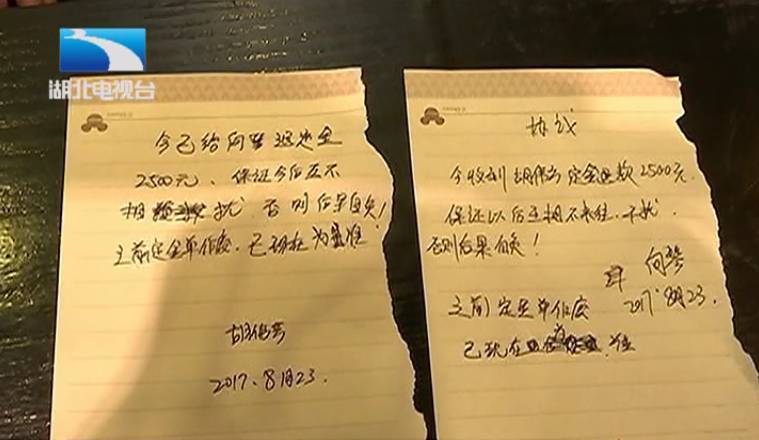 湖北电视台
今已给向琴退定金
2500元、保证今后互不
相扰 否则后果自负!
之前定金单作废、已现在为准!
2017、8月23.
协议
今收到 胡伟 定金退款2500元.
保证以后互相不来往、干扰、
否则后果自负!
向琴
2017.8月23.
之前定金单作废
已现在为准